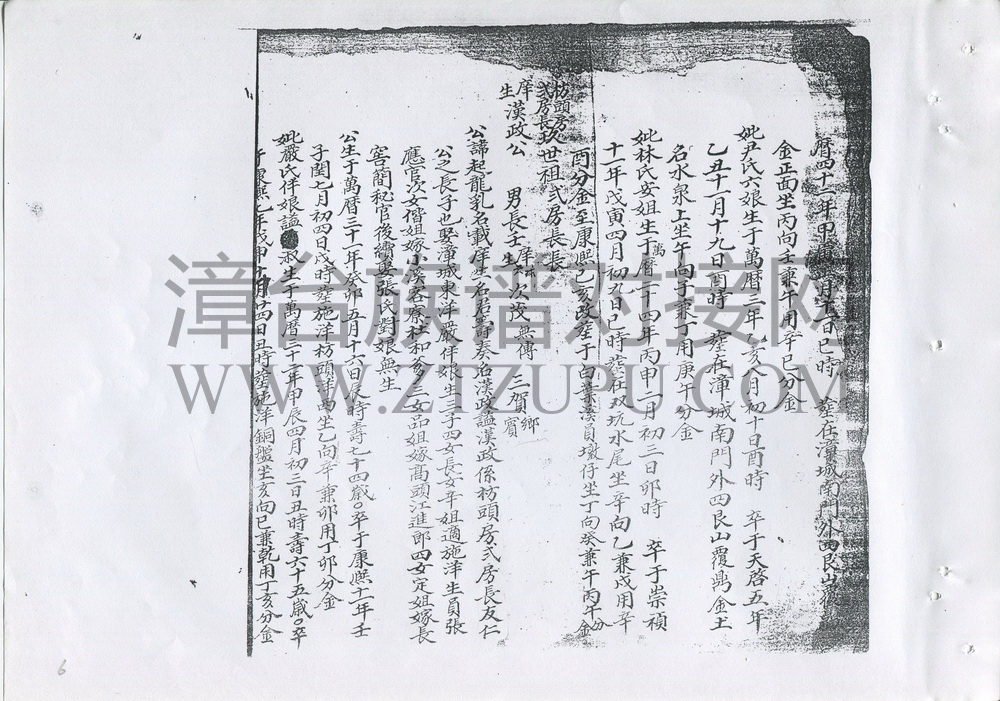 曆四十二年甲 月 日巳時 塟在漳城南門外四艮山覆
金正面坐丙向壬兼午用辛巳分金
妣尹氏六娘生于萬曆三年乙亥八月初十日酉時 卒于天啓五年
乙丑十一月十九日酉時 塟在漳城南門外四艮山覆鼎金土
名水泉上坐午向子兼丁用庚午分金
妣林氏安姐生于萬曆二十四年丙申二月初三日卯時 卒于崇禎
十一年戊寅四月初九日巳時塟在双坑水尾坐辛向乙兼戌用辛
酉分金至康熙己亥改塟于白葉湯員墩仔坐丁向癸兼午丙午分金
枋頭房式房長玖世祖式房長長
庠生漢政公 男長壬生 次茂無傳 三賀鄉賓
公諱起龍乳名載庠生名君壽奏名漢政謚漢政係枋頭房式房長友仁
公之長子也娶漳城東洋嚴伴娘生三子四女長女辛姐適施洋生員張
應官次女偕姐嫁小溪 寮杜和爹三女品姐嫁高頭江進郎四女定姐嫁長
窖簡秘官後續娶張氏對娘無生
公生于萬曆三十一年癸卯五月十六日辰時壽七十四歲卒于康熙十一年壬
子閏七月初四日戌時塟施洋枋頭洋面坐乙向辛兼卯用丁卯分金
妣嚴氏伴娘謚 淑生于萬曆三十二年甲辰四月初三日丑時壽六十五歲卒
于康熙七年戊申十月十四日丑時塟施洋銅盤坐亥向巳兼乾用丁亥分金
漳台族譜对接网
WWW.ZTZUPU.COM
6